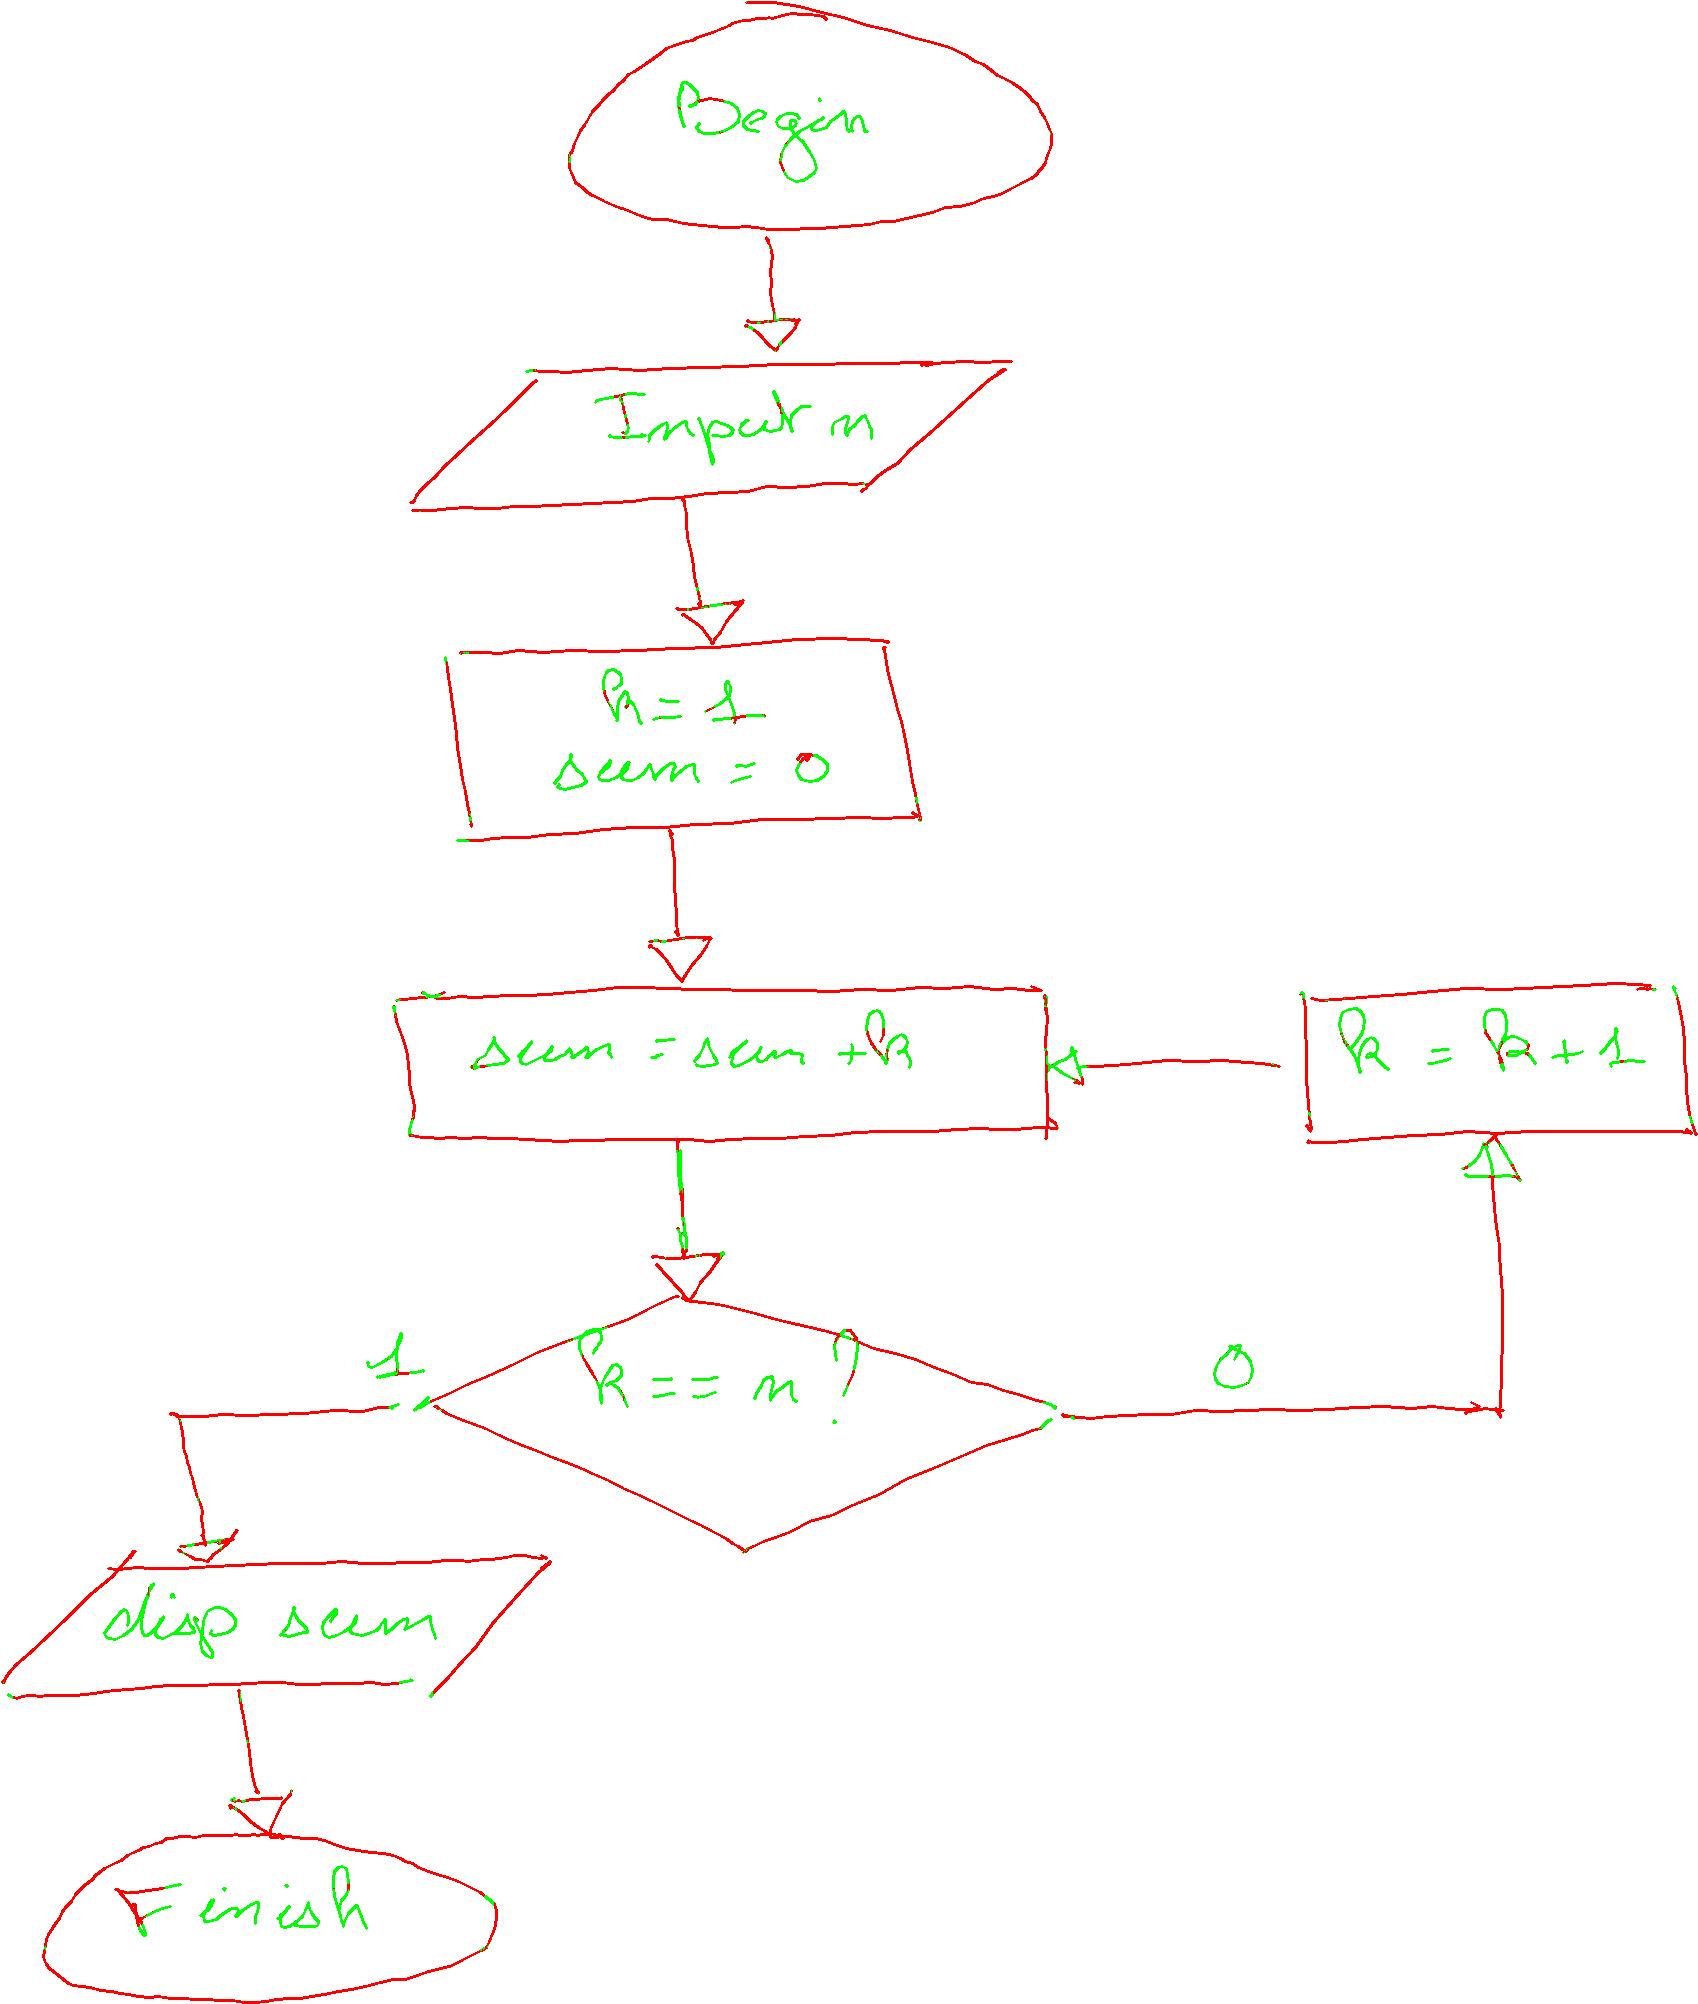 Begin
Input n
k = 1
sum = 0
sum = sum + k
k = k + 1
k == n ?
1
0
disp sum
Finish